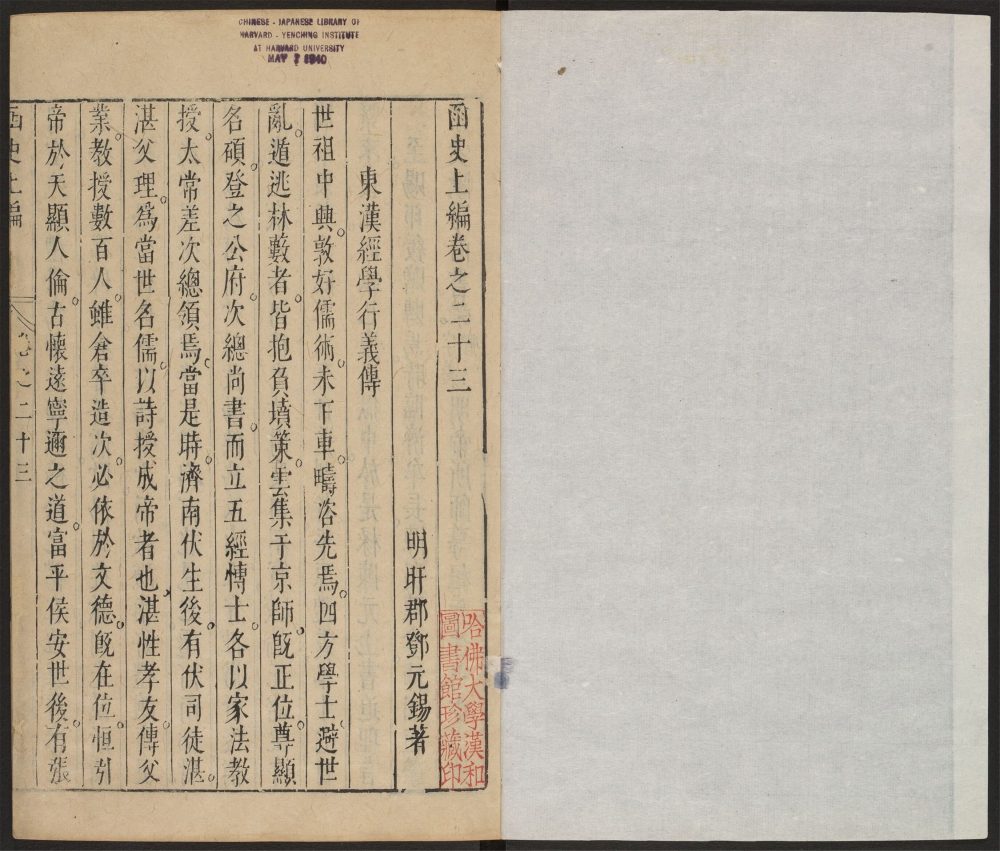 CHINESE - JAPANESE LIBRARY OF
HARVARD - YENCHING INSTITUTE
AT HARVARD UNIVERSITY
MAY 1940
函史上編卷之二十三
明盱郡鄧元錫著
東漢經學行義傳
世祖中興敦好儒術未下車疇咨先焉四方學士避世
亂遁逃林藪者皆抱負墳策雲集于京師既正位尊顯
名碩登之公府次總尚書而立五經愽士各以家法教
授太常差次總領焉當是時濟南伏生後有伏司徒湛
湛父理爲當世名儒以詩授成帝者也湛性孝友傳父
業教授數百人雖倉卒造次必依於文德既在位恒引
帝於天顯人倫古懷遠寧邇之道富平侯安世後有張
函史上編
卷之二十三
哈佛大學漢和
圖書館珍藏印